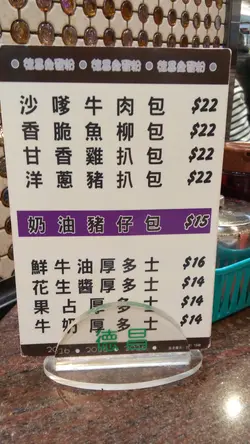 沙嗲牛肉包 $22
香脆魚柳包 $22
甘香雞扒包 $22
洋蔥豬扒包 $22
奶油豬仔包 $15
鮮牛油厚多士 $16
花生醬厚多士 $14
果占厚多士 $14
牛奶厚多士 $14
德昌